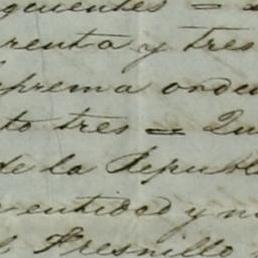 guientes =
renta y tres
prema orden
to tres = Qu
de la Republ
entidad y
Fresnillo